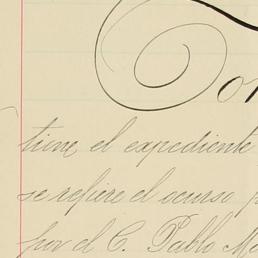 tiene el expediente
se refiere el ocurso
por el C. Pablo